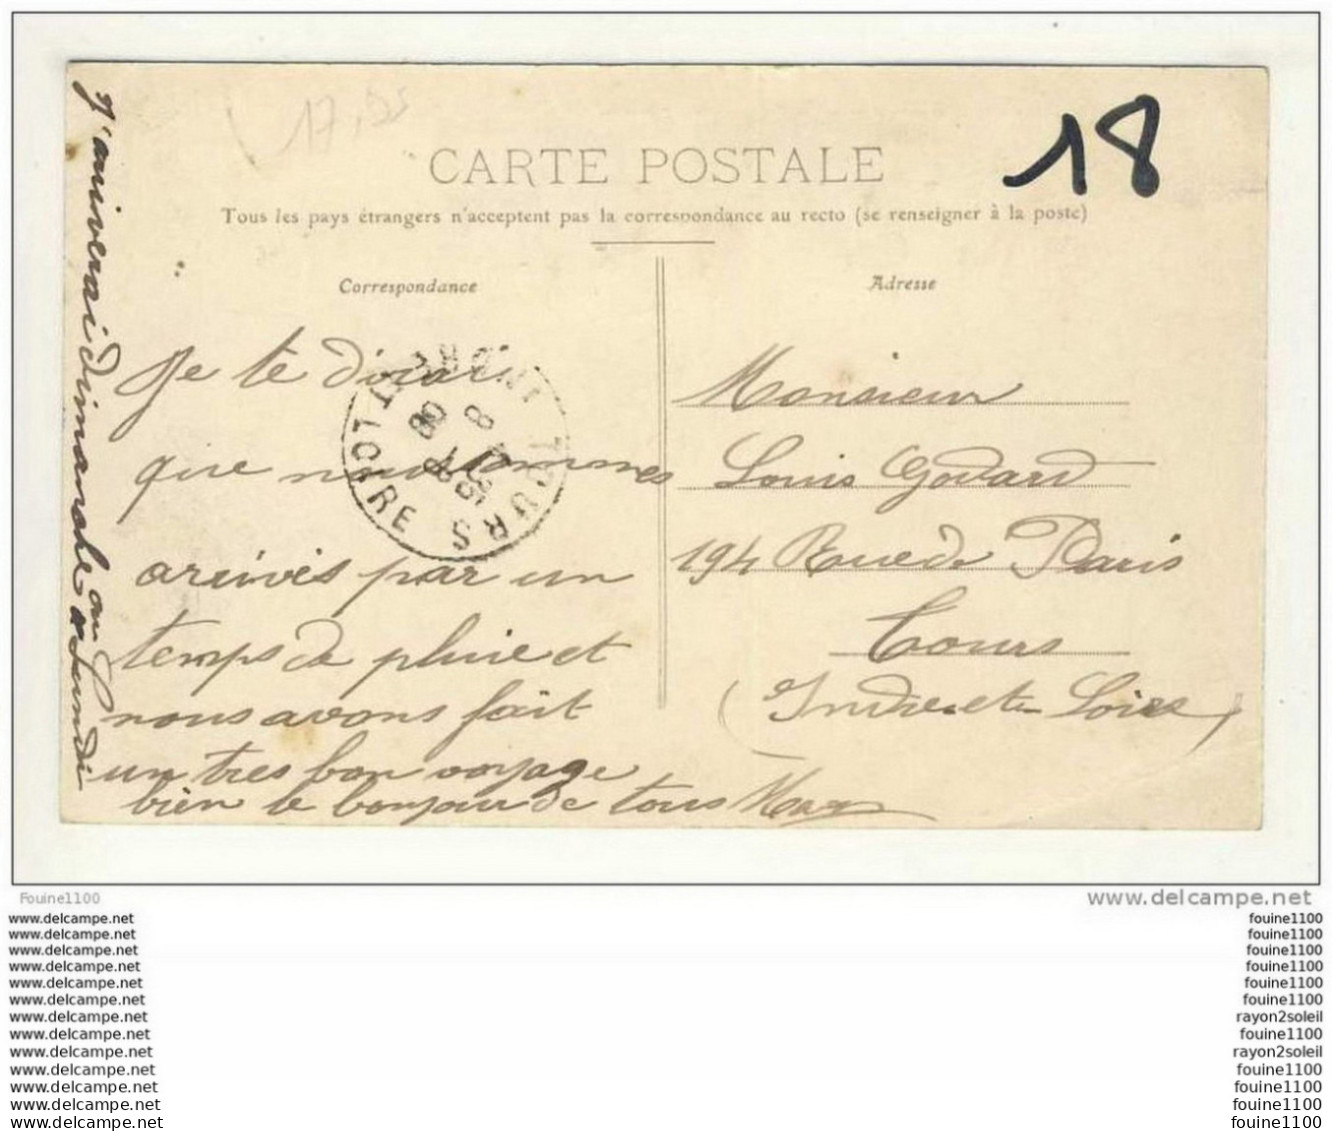 17,55
18
CARTE POSTALE
Tous les pays étrangers n'acceptent pas la correspondance au recto (se renseigner à la poste)
Correspondance
Adresse
Je te dirai
que nous sommes
arrivés par un
temps de pluie et
nous avons fait
un tres bon voyage
bien le bonjour de tous
J'arriverai dimanche ou Lundi
TOURS
INDRE ET LOIRE
Monsieur
Louis Godard
194 Rue de Paris
Tours
(Indre-et-Loire)
Fouine1100
www.delcampe.net
www.delcampe.net
www.delcampe.net
www.delcampe.net
www.delcampe.net
www.delcampe.net
www.delcampe.net
www.delcampe.net
www.delcampe.net
www.delcampe.net
www.delcampe.net
www.delcampe.net
www.delcampe.net
www.delcampe.net
fouine1100
fouine1100
fouine1100
fouine1100
fouine1100
fouine1100
rayon2soleil
fouine1100
rayon2soleil
fouine1100
fouine1100
fouine1100
fouine1100